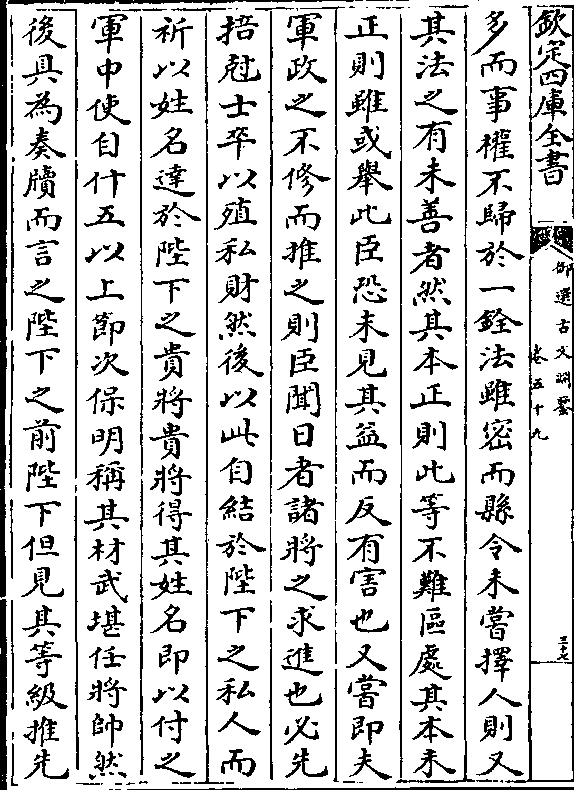 欽定四庫全書
御選古文淵鑒
卷五十九
三十七
多而事權不歸於一銓法雖密而縣令未嘗擇人則又
其法之有未善者然其本正則此等不難區處其本未
正則雖或舉此臣恐未見其益而反有害也又嘗即夫
軍政之不修而推之則臣聞日者諸將之求進也必先
掊尅士卒以殖私財然後以此自結於陛下之私人而
祈以姓名達於陛下之貴將貴將得其姓名即以付之
軍中使自什五以上節次保明稱其材武堪任將帥然
後具為奏牘而言之陛下之前陛下但見其等級推先